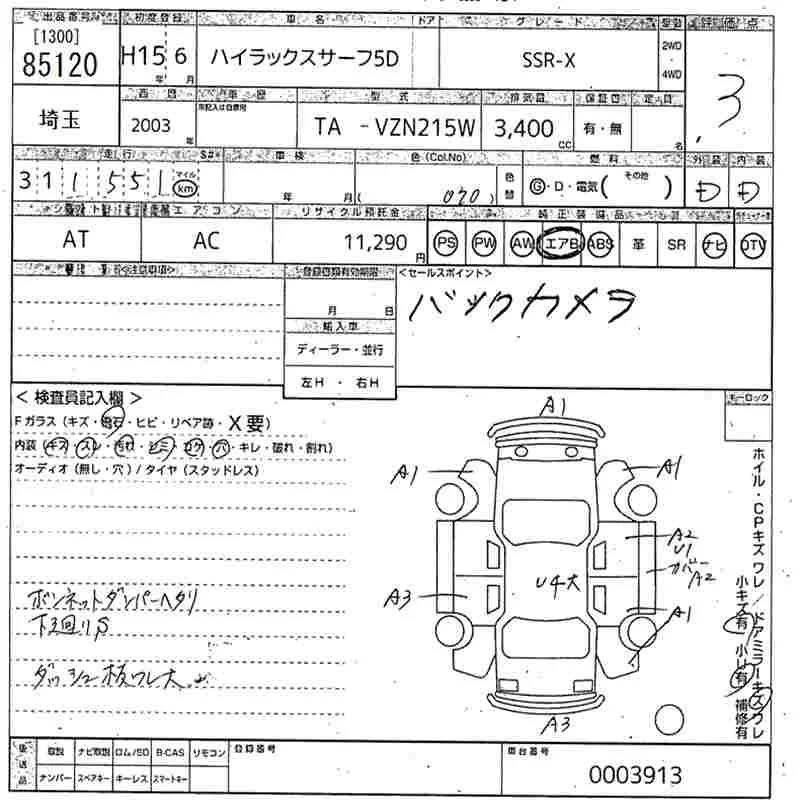 出品番号 初度登録 車名 ドア グレード 型類 評価点
[1300]
85120 H15 6 ハイラックスサーフ5D SSR-X 2WD
4WD 3
年 月
西暦 車歴 型式 排気量 保証書 定員
埼玉 2003 年 TA -VZN215W 3,400 CC 有・無 名
走行 S# 車検 色(Col.No) 燃料 外装 内装
311551 マイル km 年 月( 070 ) 色替 G・D・電気( その他 ) D D
シフト エアコン リサイクル預託金 純正装備品
AT AC 11,290 円 PS PW AW エアB ABS 革 SR ナビ TV
<注意事項> 登録書類有効期限 <セールスポイント>
月 日 バックカメラ
輸入車
ディーラー・並行
左H ・ 右H
<検査員記入欄> キーロック
Fガラス(キズ・飛石・ヒビ・リペア跡・X要)
内装(キズ・スレ・汚れ・シミ・コゲ・穴・キレ・破れ・割れ)
オーディオ(無し・穴)/タイヤ(スタッドレス)
A1
A1 A1
A2
U1
カバー
A2
U4大
A3 A1
A3
ボンネットダンパーヘタリ
下廻りS
ダッシュ板ワレ大
ホイル・CPキズワレ/ドアミラーキズワレ
小キズ有 小凹有 補修有
後送品 取説 ナビ取説 ロム/SD B-CAS リモコン 登録番号 車台番号
ナンバー スペアキー キーレス スマートキー 0003913